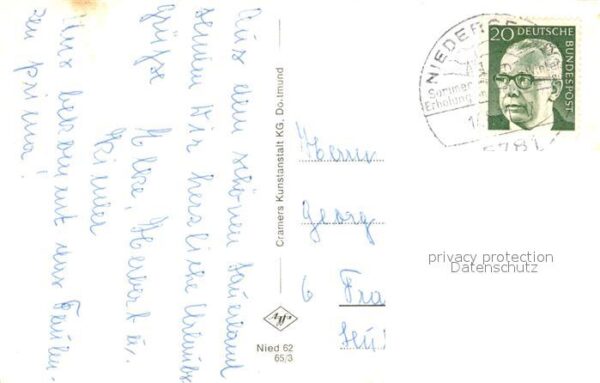 Aus dem schönen Sauerland
senden wir herzliche Urlaubs
grüße
Herbert u.
Uns bekommt das Faulen-
zen prima!
Cramers Kunstanstalt KG, Dortmund
Nied 62
65/3
Herrn
Georg
6 Fra
NIEDERS
Sommer
Erholung
5781
20 DEUTSCHE
BUNDESPOST
privacy protection
Datenschutz